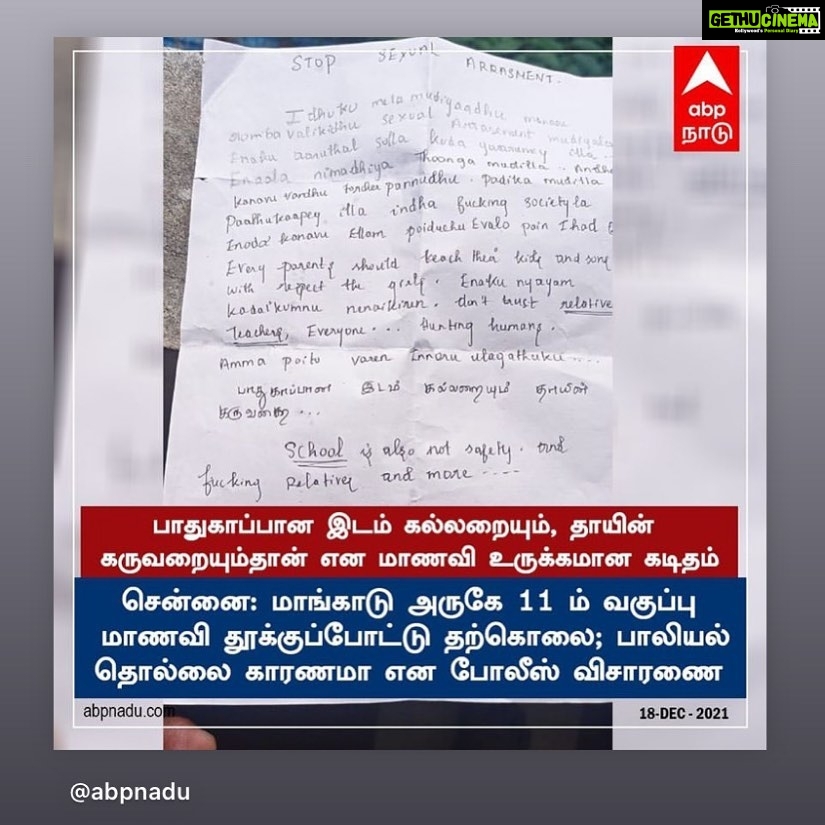 GETHUCINEMA
Kollywood's Personal Diary
abp
நாடு
STOP SEXUAL ARRASMENT.
Idhuku mela mudiyaadhu
romba valikidhu sexual Arrasement mudiyala
Enaku aaruthal solla kuda yarumey illa ..
Enaala nimadhiya Thoonga mudilla .. Andha
kanavu vandhu pannudhu . Padika mudilla
Paathukaapey illa indha fucking society la
Enoda kanavu Ellam poiduchu Evalo pain I had
Every parents should teach their kids and sons
with respect the girls . Enaku nyayam
kadaikumnu nenaikiren . don't trust relative
Teachers, Everyone ... Hunting humans .
Amma poitu varen Innoru ulagathuku ....
பாதுகாப்பான இடம் கல்லறையும் தாயின்
கருவறை ...
School is also not safety . and
fucking Relatives and more ----
பாதுகாப்பான இடம் கல்லறையும், தாயின்
கருவறையும்தான் என மாணவி உருக்கமான கடிதம்
சென்னை: மாங்காடு அருகே 11 ம் வகுப்பு
மாணவி தூக்குப்போட்டு தற்கொலை; பாலியல்
தொல்லை காரணமா என போலீஸ் விசாரணை
abpnadu.com
18-DEC - 2021
@abpnadu